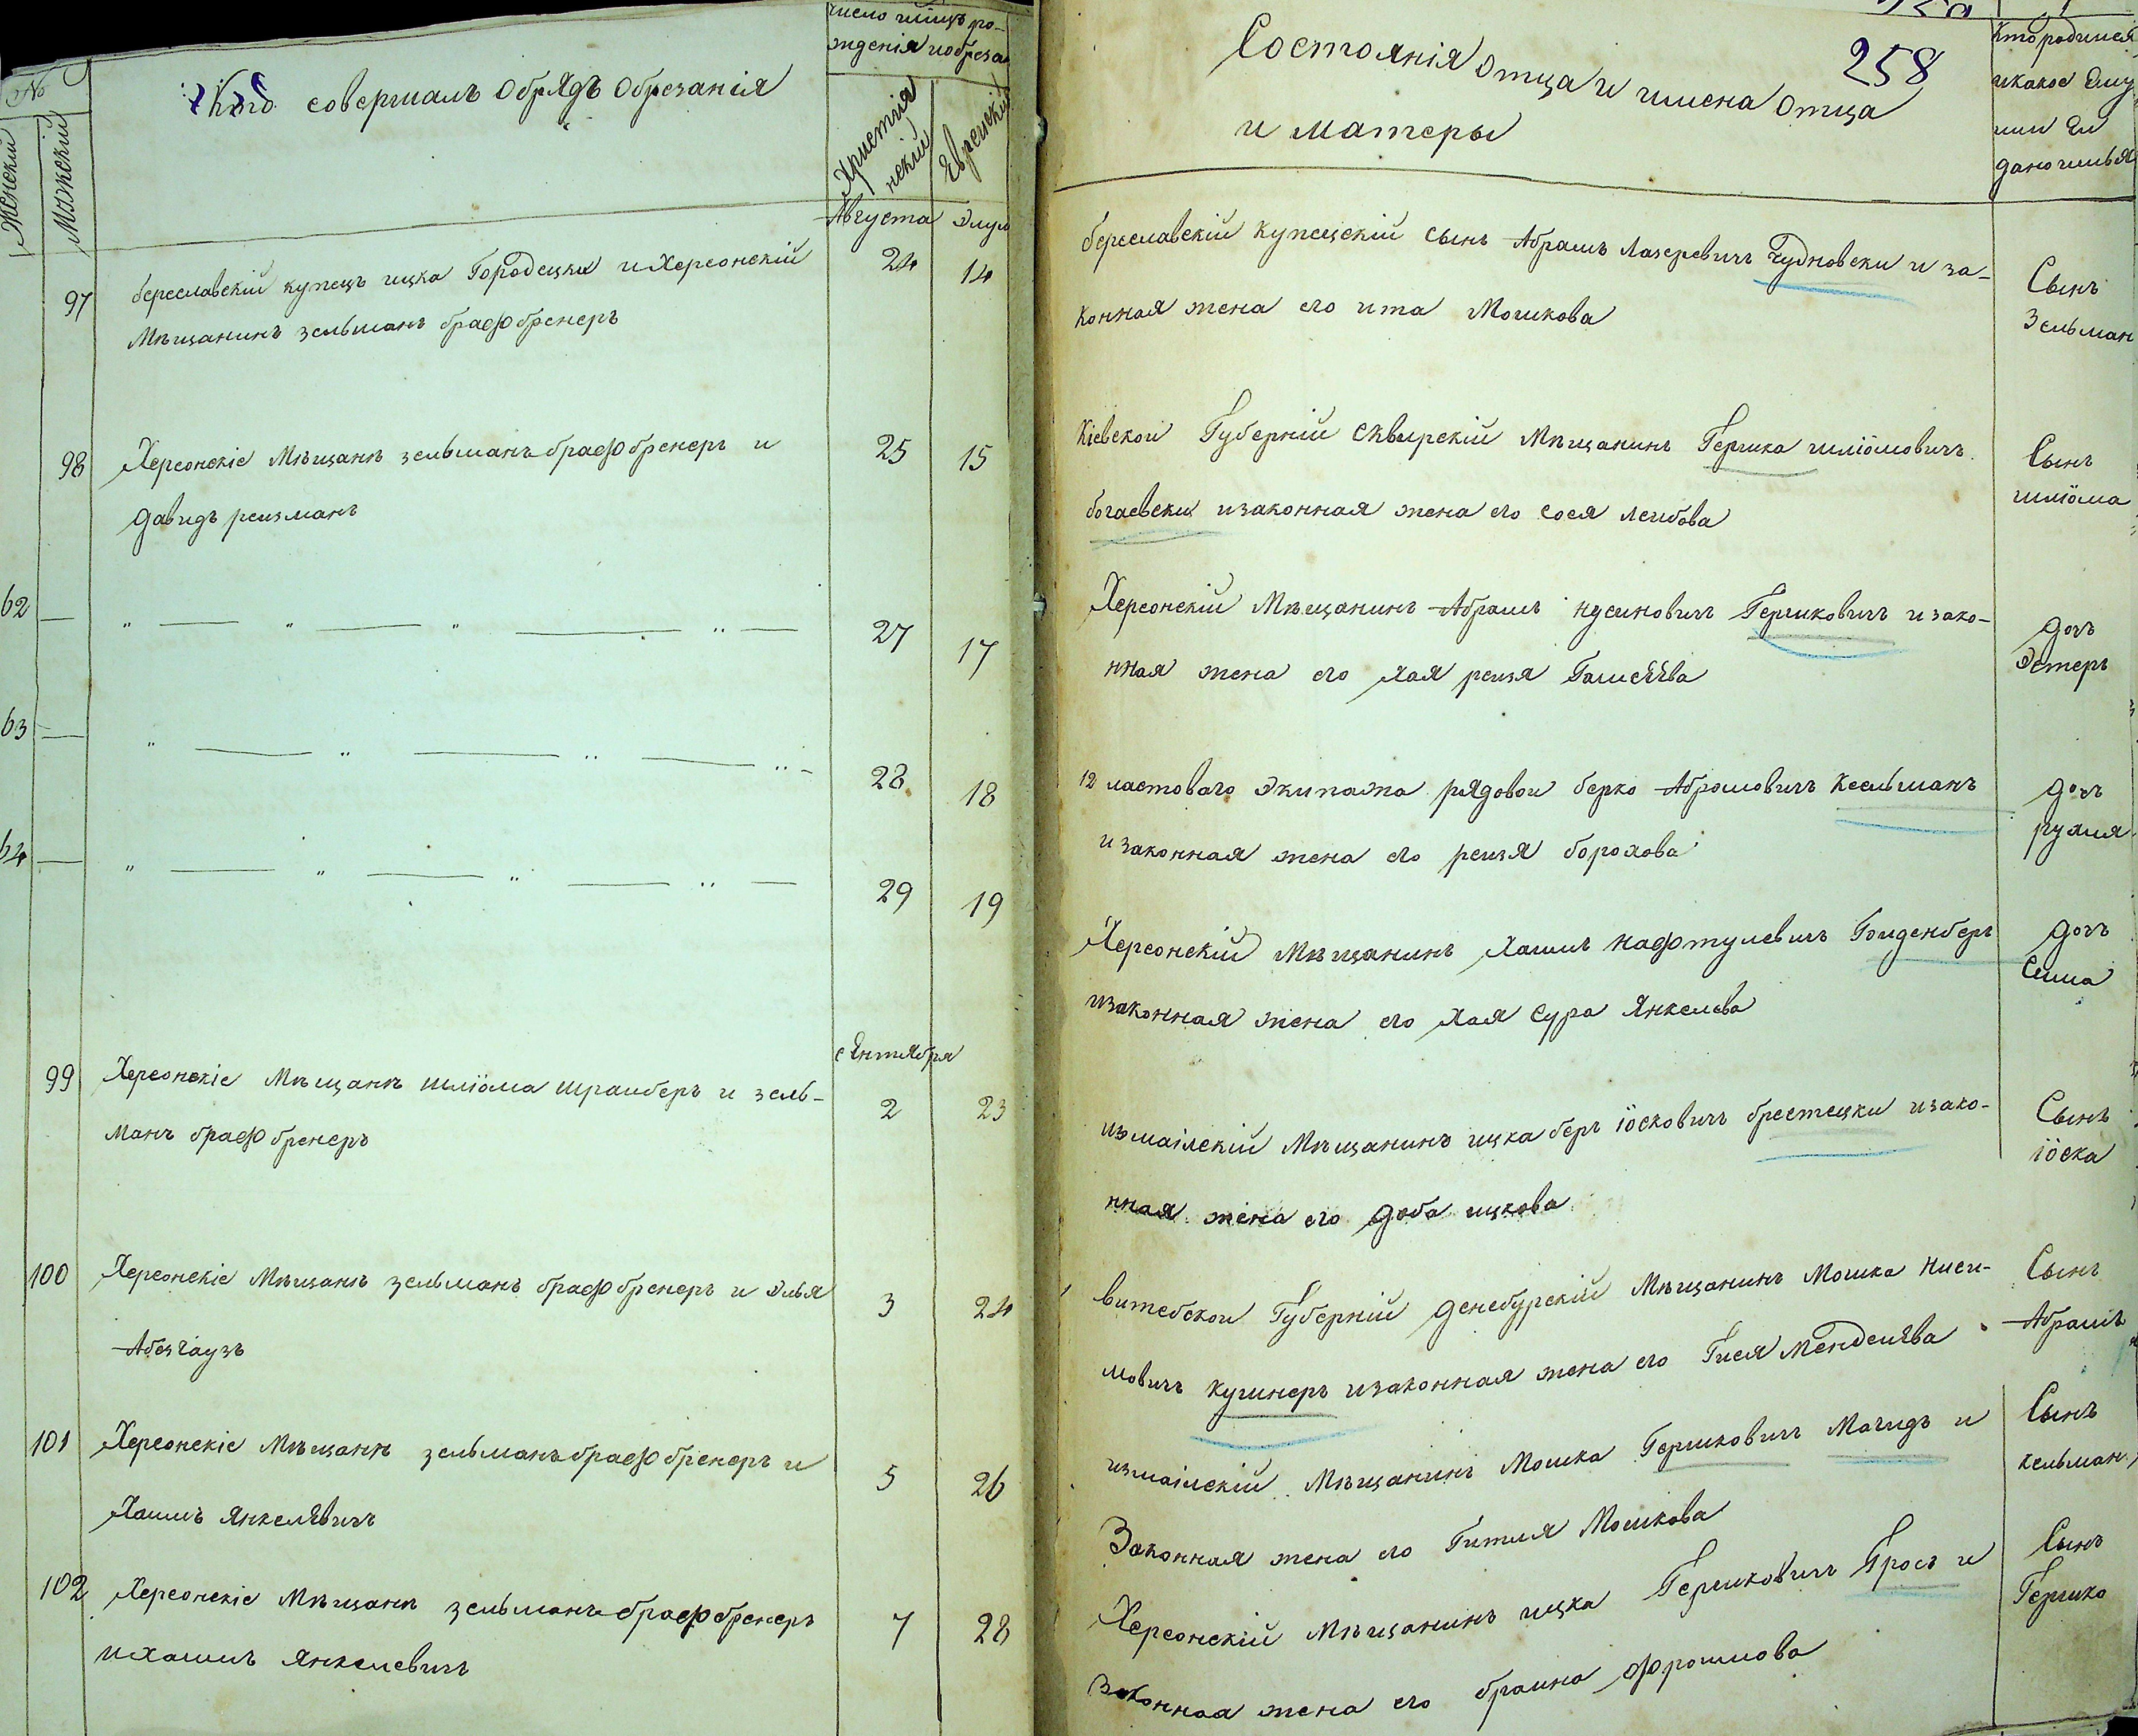 №
Женскій
Мужскій
Кто совершалъ обрядъ обрезанія
число мщъ ро-
жденія иобреза
Християнскій
Еврейскій
Августа
Элул
97
береславскій купецъ ицка Городецки и Херсонскій
Мѣщанинъ зельманъ брафбренеръ
24
14
98
Херсонскіе Мѣщанѣ зельманъ брафбренеръ и
давидъ реизманъ
25
15
62
27
17
63
28
18
64
29
19
сентября
99
Херсонскіе Мѣщанѣ шліома шраиберъ и зель-
манъ брафбренеръ
2
23
100
Херсонскіе Мѣщанѣ зельманъ брафбренеръ и Элья
Абезгаузъ
3
24
101
Херсонскіе Мѣщанѣ зельманъ брафбренеръ и
Хаимъ Янкелевичъ
5
26
102
Херсонскіе Мѣщанѣ зельманъ брафбренеръ
и хаимъ Янкелевичъ
7
28
258
Состоянія отца и имена отца
и матеры
Кто родился
икакое Ему
или Ей
дано имья
береславскій купецскій сынъ Абрамъ Лазеревичъ Чудновски и за-
конная жена его ита Мошкова
Сынъ
Зельман
Кіевской Губерній сквирскій Мѣщанинъ Гершка шліомовичъ
богаевски изаконная жена его сося леибова
Сынъ
шліома
Херсонскій Мѣщанинъ Абрамъ нусиновичъ Гершковичъ изако-
нная жена его хая реизя
дочъ
Эстеръ
12 ластоваго экипажа рядовои берко Абромовичъ Кесельманъ
изаконная жена его реизя борохова
дочъ
рухля
Херсонскій Мѣщанинъ Хаимъ Нафтулевичъ Гоиденберг
изаконная жена его хая сура Янкелева
дочъ
Сима
измаілскій Мѣщанинъ ицка беръ іосковичъ брестецки изако-
нная жена его доба ицкова
Сынъ
іоска
витебской Губерній денебурскій Мѣщанинъ Мошка Ниси-
мовичъ кушнеръ изаконная жена его Гися Менделева
Сынъ
Абрамъ
измаілскій Мѣщанинъ Мошка Гершковичъ Магидъ и
Законная жена его Гитля Мошкова
Сынъ
кельман
Херсонскій Мѣщанинъ ицка Гершковичъ Гросъ и
Законная жена его браина Фроимова
Сынъ
Гершко